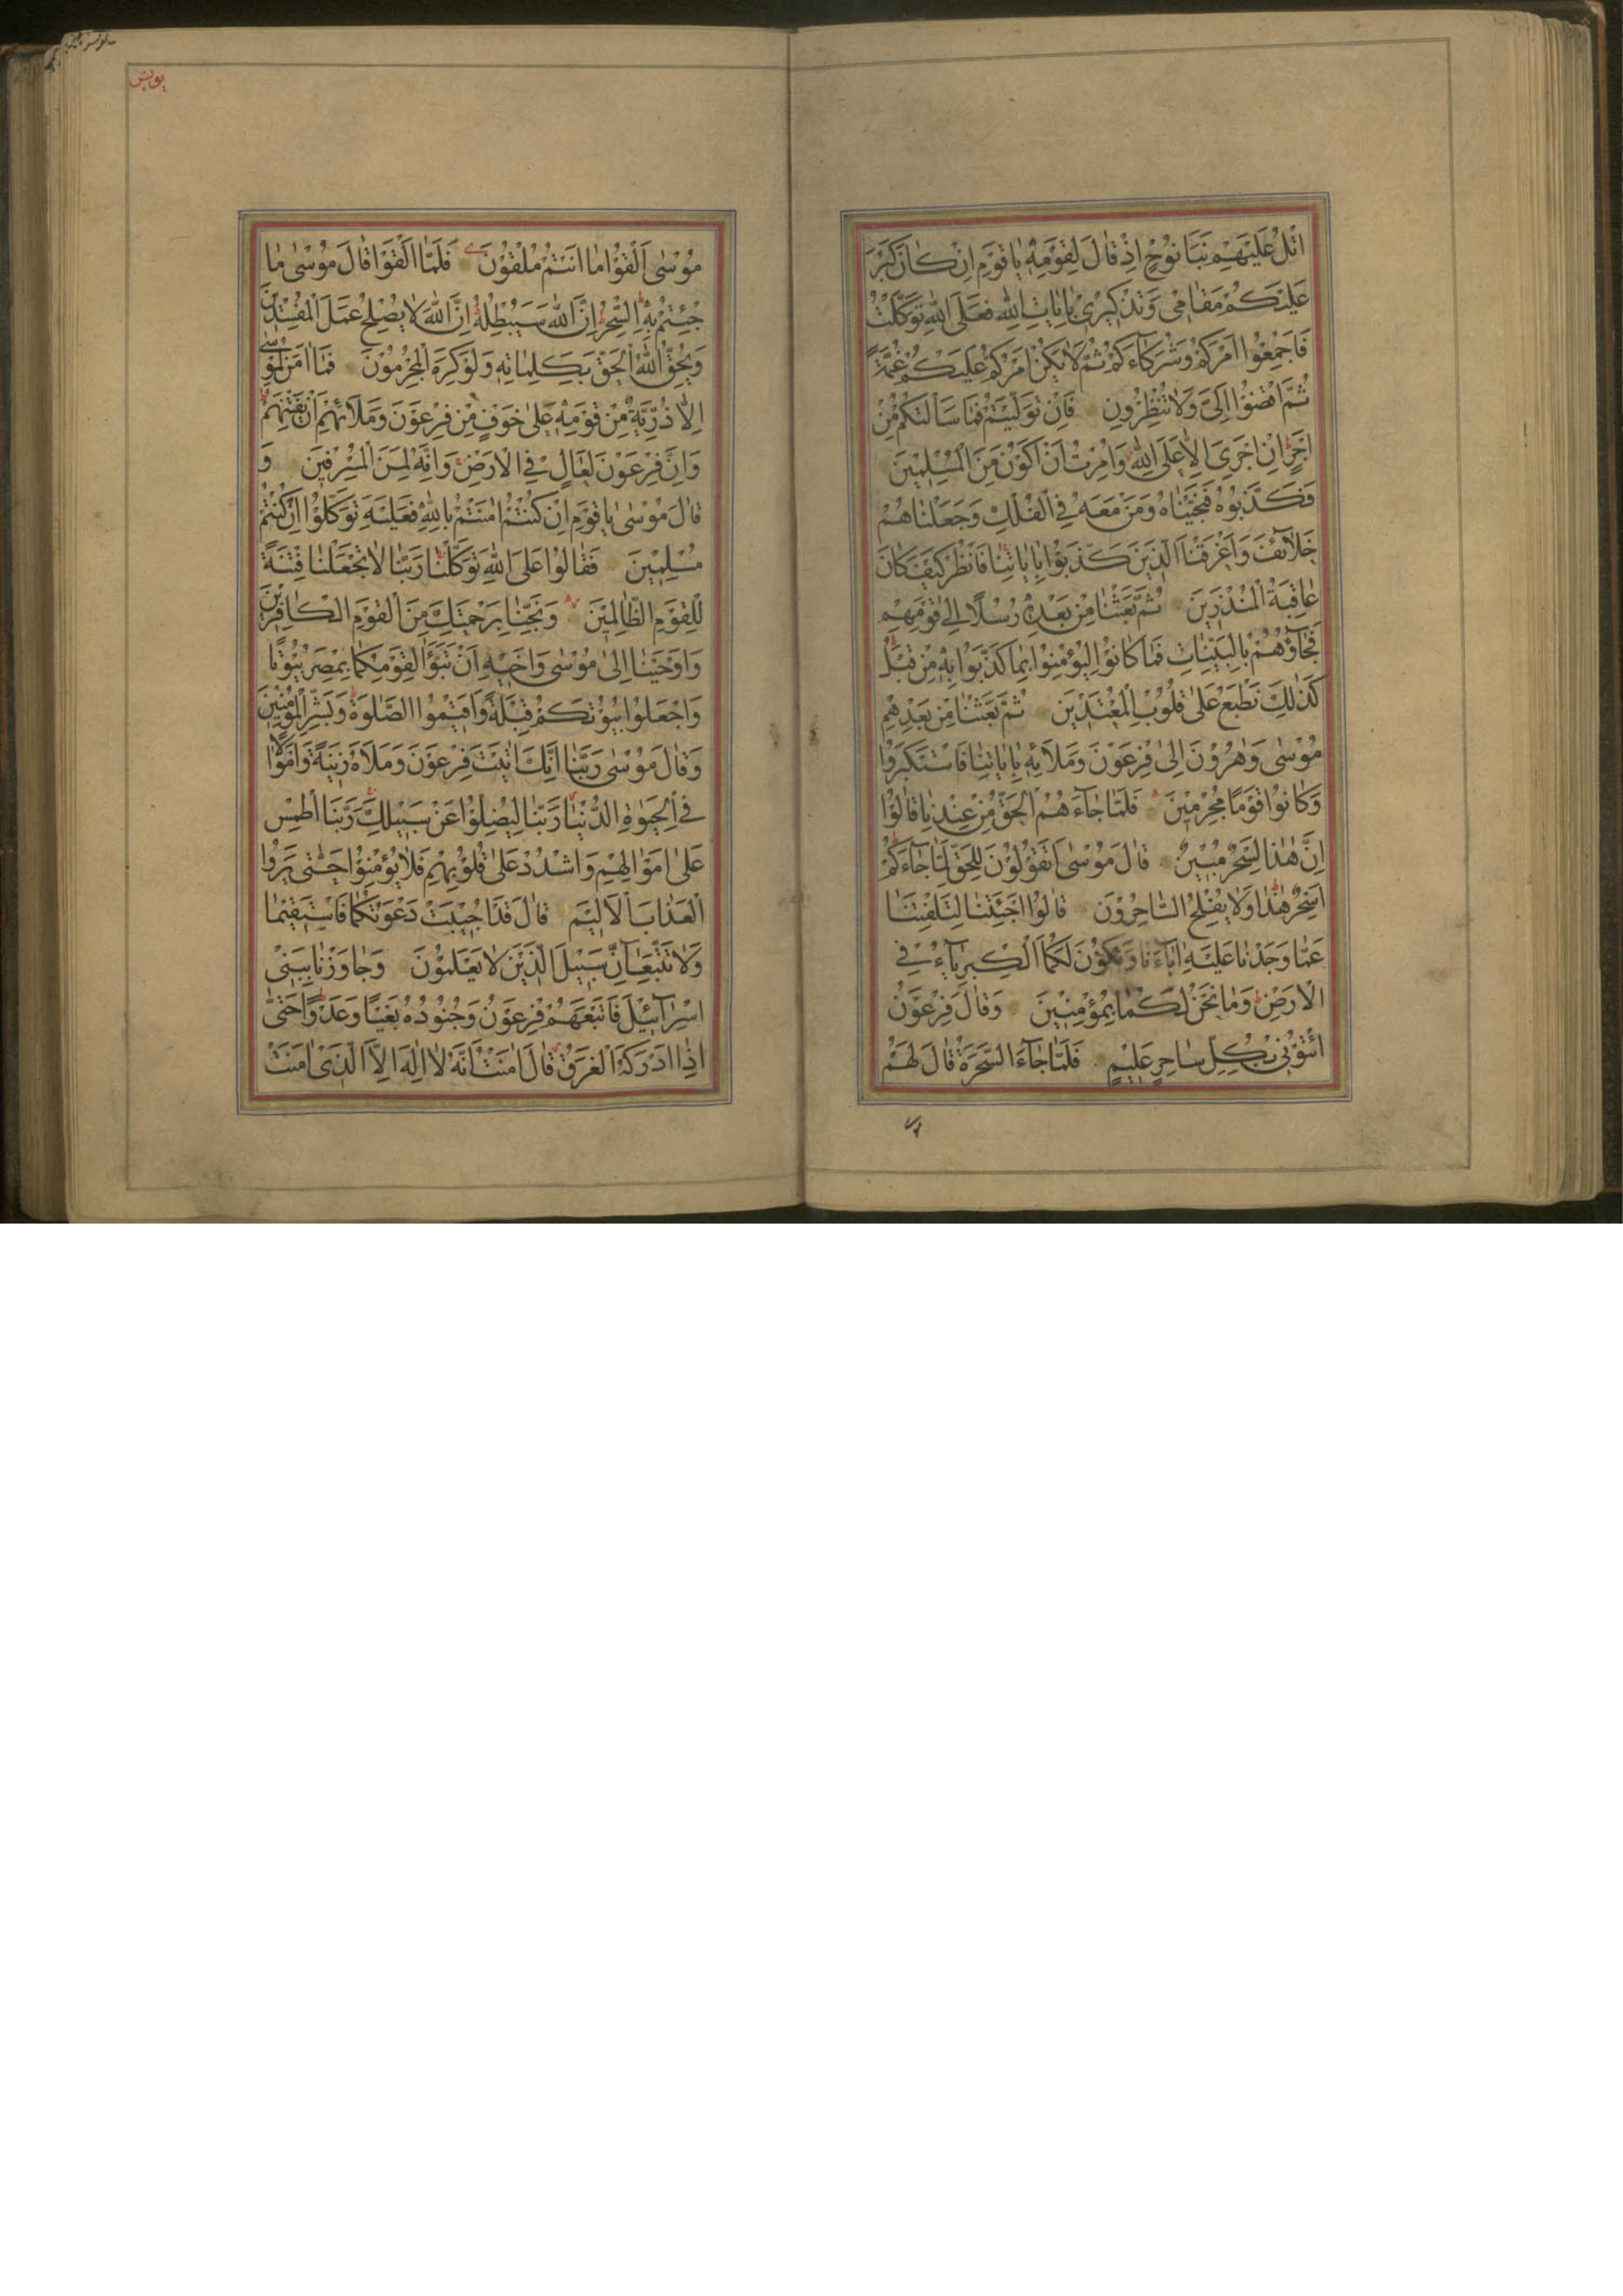 اتْلُ عَلَيْهِمْ نَبَأَ نُوحٍ اِذْ قَالَ لِقَوْمِهٖ يَا قَوْمِ اِنْ كَانَ كَبُرَ
عَلَيْكُمْ مَقَامٖى وَتَذْكٖيرٖى بِاٰيَاتِ اللّٰهِ فَعَلَى اللّٰهِ تَوَكَّلْتُ
فَاَجْمِعُوا اَمْرَكُمْ وَشُرَكَآءَكُمْ ثُمَّ لَا يَكُنْ اَمْرُكُمْ عَلَيْكُمْ غُمَّةً
ثُمَّ اقْضُوا اِلَىَّ وَلَا تُنْظِرُونِ فَاِنْ تَوَلَّيْتُمْ فَمَا سَاَلْتُكُمْ مِنْ
اَجْرٍ اِنْ اَجْرِىَ اِلَّا عَلَى اللّٰهِ وَاُمِرْتُ اَنْ اَكُونَ مِنَ الْمُسْلِمٖينَ
فَكَذَّبُوهُ فَنَجَّيْنَاهُ وَمَنْ مَعَهُ فِى الْفُلْكِ وَجَعَلْنَاهُمْ
خَلَآئِفَ وَاَغْرَقْنَا الَّذٖينَ كَذَّبُوا بِاٰيَاتِنَا فَانْظُرْ كَيْفَ كَانَ
عَاقِبَةُ الْمُنْذَرٖينَ ثُمَّ بَعَثْنَا مِنْ بَعْدِهٖ رُسُلًا اِلٰى قَوْمِهِمْ
فَجَآؤُهُمْ بِالْبَيِّنَاتِ فَمَا كَانُوا لِيُؤْمِنُوا بِمَا كَذَّبُوا بِهٖ مِنْ قَبْلُ
كَذٰلِكَ نَطْبَعُ عَلٰى قُلُوبِ الْمُعْتَدٖينَ ثُمَّ بَعَثْنَا مِنْ بَعْدِهِمْ
مُوسٰى وَهٰرُونَ اِلٰى فِرْعَوْنَ وَمَلَا۟ئِهٖ بِاٰيَاتِنَا فَاسْتَكْبَرُوا
وَكَانُوا قَوْمًا مُجْرِمٖينَ فَلَمَّا جَآءَهُمُ الْحَقُّ مِنْ عِنْدِنَا قَالُوا
اِنَّ هٰذَا لَسِحْرٌ مُبٖينٌ قَالَ مُوسٰى اَتَقُولُونَ لِلْحَقِّ لَمَّا جَآءَكُمْ
اَسِحْرٌ هٰذَا وَلَا يُفْلِحُ السَّاحِرُونَ قَالُوا اَجِئْتَنَا لِتَلْفِتَنَا
عَمَّا وَجَدْنَا عَلَيْهِ اٰبَآءَنَا وَتَكُونَ لَكُمَا الْكِبْرِيَآءُ فِى
الْاَرْضِ وَمَا نَحْنُ لَكُمَا بِمُؤْمِنٖينَ وَقَالَ فِرْعَوْنُ
ائْتُونٖى بِكُلِّ سَاحِرٍ عَلٖيمٍ فَلَمَّا جَآءَ السَّحَرَةُ قَالَ لَهُمْ
يونس
مُوسٰى اَلْقُوا مَا اَنْتُمْ مُلْقُونَ فَلَمَّا اَلْقَوْا قَالَ مُوسٰى مَا
جِئْتُمْ بِهِ السِّحْرُ اِنَّ اللّٰهَ سَيُبْطِلُهُ اِنَّ اللّٰهَ لَا يُصْلِحُ عَمَلَ الْمُفْسِدٖينَ
وَيُحِقُّ اللّٰهُ الْحَقَّ بِكَلِمَاتِهٖ وَلَوْ كَرِهَ الْمُجْرِمُونَ فَمَا اٰمَنَ لِمُوسٰى
اِلَّا ذُرِّيَّةٌ مِنْ قَوْمِهٖ عَلٰى خَوْفٍ مِنْ فِرْعَوْنَ وَمَلَا۟ئِهِمْ اَنْ يَفْتِنَهُمْ
وَاِنَّ فِرْعَوْنَ لَعَالٍ فِى الْاَرْضِ وَاِنَّهُ لَمِنَ الْمُسْرِفٖينَ وَ
قَالَ مُوسٰى يَا قَوْمِ اِنْ كُنْتُمْ اٰمَنْتُمْ بِاللّٰهِ فَعَلَيْهِ تَوَكَّلُوا اِنْ كُنْتُمْ
مُسْلِمٖينَ فَقَالُوا عَلَى اللّٰهِ تَوَكَّلْنَا رَبَّنَا لَا تَجْعَلْنَا فِتْنَةً
لِلْقَوْمِ الظَّالِمٖينَ وَنَجِّنَا بِرَحْمَتِكَ مِنَ الْقَوْمِ الْكَافِرٖينَ
وَاَوْحَيْنَا اِلٰى مُوسٰى وَاَخٖيهِ اَنْ تَبَوَّاٰ لِقَوْمِكُمَا بِمِصْرَ بُيُوتًا
وَاجْعَلُوا بُيُوتَكُمْ قِبْلَةً وَاَقٖيمُوا الصَّلٰوةَ وَبَشِّرِ الْمُؤْمِنٖينَ
وَقَالَ مُوسٰى رَبَّنَا اِنَّكَ اٰتَيْتَ فِرْعَوْنَ وَمَلَاَهُ زٖينَةً وَاَمْوَالًا
فِى الْحَيٰوةِ الدُّنْيَا رَبَّنَا لِيُضِلُّوا عَنْ سَبٖيلِكَ رَبَّنَا اطْمِسْ
عَلٰى اَمْوَالِهِمْ وَاشْدُدْ عَلٰى قُلُوبِهِمْ فَلَا يُؤْمِنُوا حَتّٰى يَرَوُا
الْعَذَابَ الْاَلٖيمَ قَالَ قَدْ اُجٖيبَتْ دَعْوَتُكُمَا فَاسْتَقٖيمَا
وَلَا تَتَّبِعَآنِّ سَبٖيلَ الَّذٖينَ لَا يَعْلَمُونَ وَجَاوَزْنَا بِبَنٖى
اِسْرَآئٖيلَ فَاَتْبَعَهُمْ فِرْعَوْنُ وَجُنُودُهُ بَغْيًا وَعَدْوًا حَتّٰى
اِذَا اَدْرَكَهُ الْغَرَقُ قَالَ اٰمَنْتُ اَنَّهُ لَا اِلٰهَ اِلَّا الَّذٖى اٰمَنَتْ